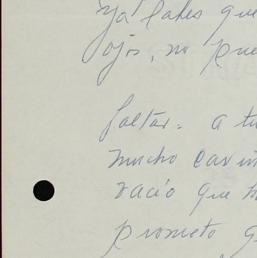 ya sabes que
ojos, no pue
faltar. a tu
mucho cariñ
vacío que
prometo q